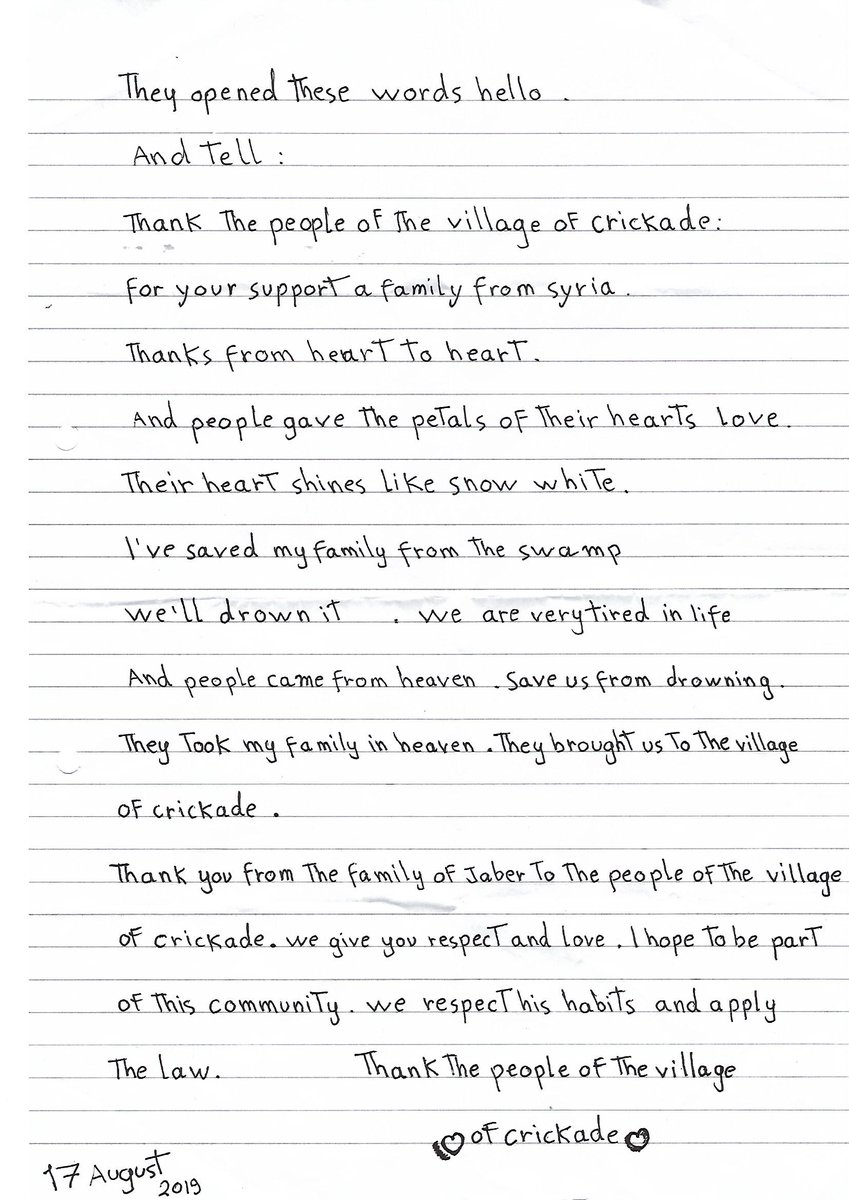 They opened these words hello .
And Tell :
Thank The people of The village of crickade:
For your support a family from syria .
Thanks from heart To heart.
And people gave The petals of Their hearts Love.
Their heart shines like snow white.
I've saved my family from The swamp
we'll drown it . we are very tired in life
And people came from heaven . Save us from drowning.
They Took my family in heaven . They brought us To The village
of crickade .
Thank you from The family of Jaber To The people of The village
of crickade. we give you respect and love . I hope To be part
of This community. we respect his habits and apply
The law. Thank The people of The village
of crickade
17 August
2019